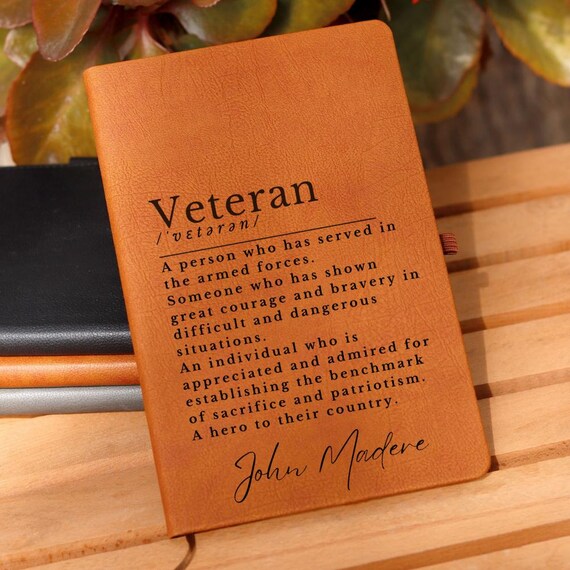 Veteran
/ˈvɛtərən/
A person who has served in
the armed forces.
Someone who has shown
great courage and bravery in
difficult and dangerous
situations.
An individual who is
appreciated and admired for
establishing the benchmark
of sacrifice and patriotism.
A hero to their country.
John Madere